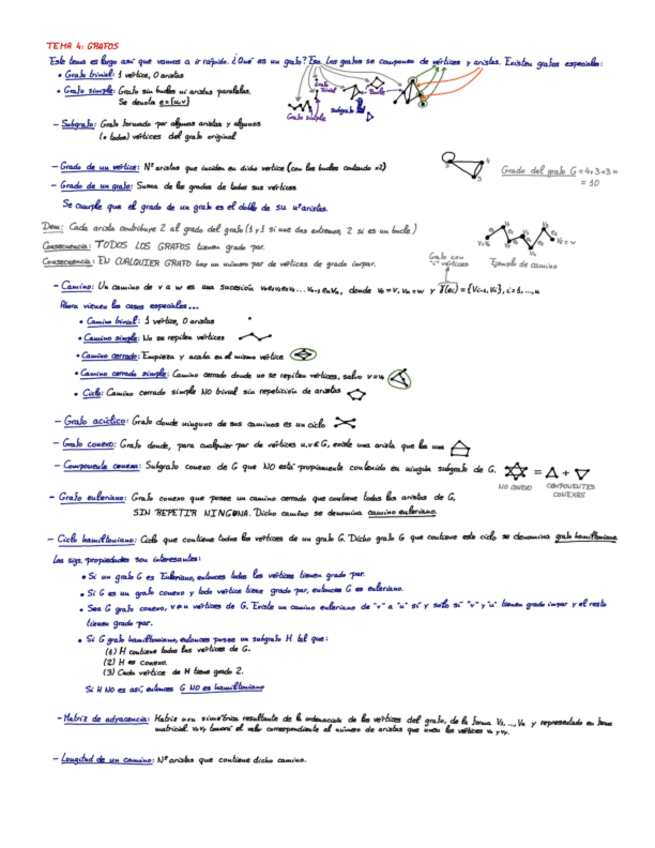 TEMA 4: GRAFOS
Este tema es largo así que vamos a ir rápido. ¿Qué es un grafo? Eso. Los grafos se componen de vértices y aristas. Existen grafos especiales:
• Grafo trivial: 1 vértice, 0 aristas
• Grafo simple: Grafo sin bucles ni aristas paralelas.
Se denota e={u,v}
Grafo trivial
Bucle
Grafo simple
Subgrafo
– Subgrafo: Grafo formado por algunas aristas y algunos
(o todos) vértices del grafo original
– Grado de un vértice: Nº aristas que inciden en dicho vertice (con los bucles contando x2)
– Grado de un grafo: Suma de los grados de todos sus vértices
4
3
3
Grado del grafo G = 4+3+3 =
= 10
Se cumple que el grado de un grafo es el doble de su nº aristas.
Dem: Cada arista contribuye 2 al grado del grafo (1 y 1 si une dos extremos, 2 si es un bucle)
Consecuencia: TODOS LOS GRAFOS tienen grado par.
Consecuencia: EN CUALQUIER GRAFO hay un número par de vértices de grado impar.
Grafo con
vértices
Ejemplo de camino
– Camino: Un camino de v a w es una sucesión v₀e₁v₁e₂v₂...vₙ₋₁eₙvₙ, donde v₀=v, vₙ=w y γ(eᵢ)={vᵢ₋₁,vᵢ}, i=1,...,n
Ahora vienen los casos especiales...
• Camino trivial: 1 vértice, 0 aristas
• Camino simple: No se repiten vértices
• Camino cerrado: Empieza y acaba en el mismo vértice
• Camino cerrado simple: Camino cerrado donde no se repiten vértices, salvo v=w
• Ciclo: Camino cerrado simple NO trivial sin repetición de aristas
– Grafo acíclico: Grafo donde ninguno de sus caminos es un ciclo
– Grafo conexo: Grafo donde, para cualquier par de vértices u,v∈G, existe una arista que los une
– Componente conexa: Subgrafo conexo de G que NO está propiamente contenido en ningún subgrafo de G.
= +
NO CONEXO
COMPONENTES
CONEXAS
– Grafo euleriano: Grafo conexo que posee un camino cerrado que contiene todas las aristas de G,
SIN REPETIR NINGUNA. Dicho camino se denomina camino euleriano.
– Ciclo hamiltoniano: Ciclo que contiene todos los vértices de un grafo G. Dicho grafo G que contiene este ciclo se denomina grafo hamiltoniano.
Las sigs. propiedades son interesantes:
• Si un grafo G es Euleriano, entonces todos los vértices tienen grado par.
• Si G es un grafo conexo y todo vértice tiene grado par, entonces G es euleriano.
• Sea G grafo conexo, v≠u vértices de G. Existe un camino euleriano de "v" a "u" sí y solo si "v" y "u" tienen grado impar y el resto
tienen grado par.
• Si G grafo hamiltoniano, entonces posee un subgrafo H tal que:
(1) H contiene todos los vértices de G.
(2) H es conexo.
(3) Cada vértice de H tiene grado 2.
Si H NO es así, entonces G NO es hamiltoniano
– Matriz de adyacencia: Matriz nxn simétrica resultante de la ordenación de los vértices del grafo, de la forma V₁,...,Vₙ y representado en forma
matricial. tomará el valor correspondiente al número de aristas que unen los vértices
– Longitud de un camino: Nº aristas que contiene dicho camino.